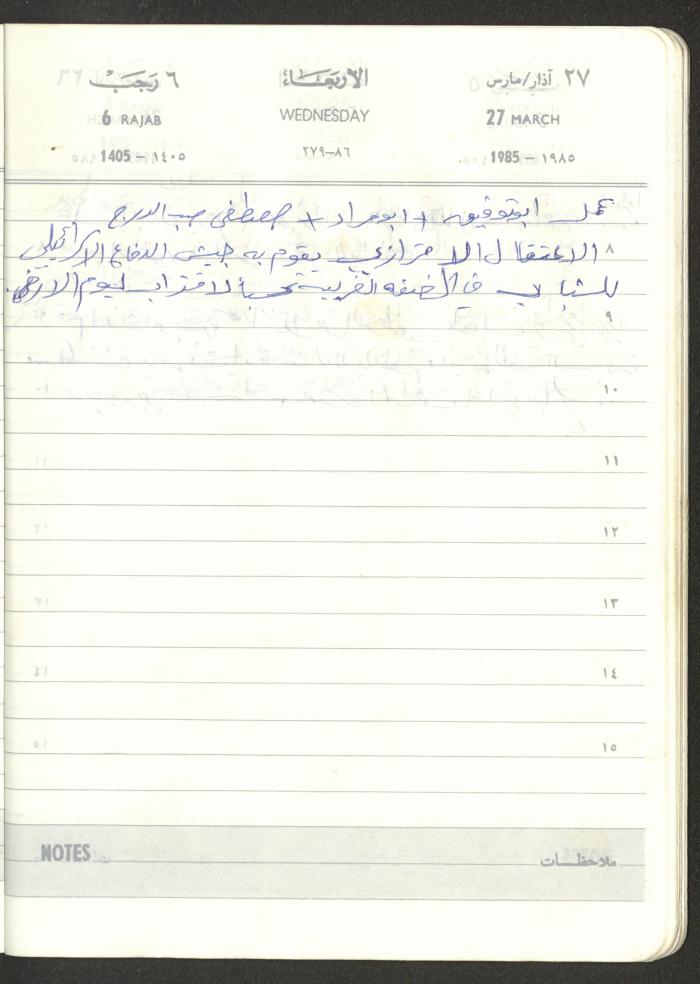 ٢٧ آذار/مارس الأربعاء ٦ رجب
27 MARCH WEDNESDAY 6 RAJAB
1985 – ١٩٨٥ ٨٦–٢٧٩ 1405 – ١٤٠٥
عمل ابوتوفيق + ابومراد + مصطفى صب الدرج
٨ الاعتقال الاحترازي يقوم به جيش الدفاع الاسرائيلي
للشباب في الضفه الغربية تحسباً لاقتراب ليوم الارض.
٩
١٠
١١
١٢
١٣
١٤
١٥
NOTES ملاحظات